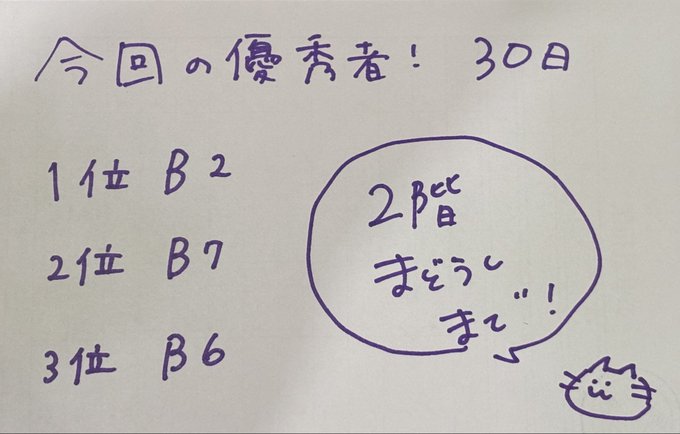 今回の優秀者! 30日
1位 B2
2位 B7
3位 B6
2階
まどうし
まで!